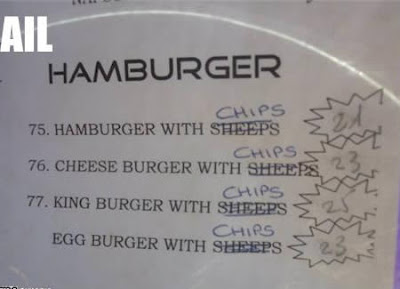 AIL
HAMBURGER
CHIPS
75. HAMBURGER WITH SHEEPS 21
CHIPS
76. CHEESE BURGER WITH SHEEPS 23
CHIPS
77. KING BURGER WITH SHEEPS 25
CHIPS
EGG BURGER WITH SHEEPS 23